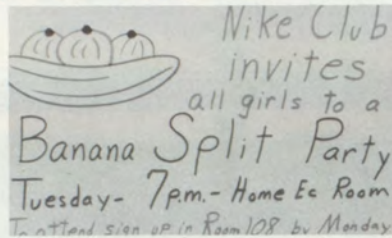 Nike Club
invites
all girls to a
Banana Split Party
Tuesday- 7p.m.- Home Ec Room
To attend sign up in Room 108 by Monday